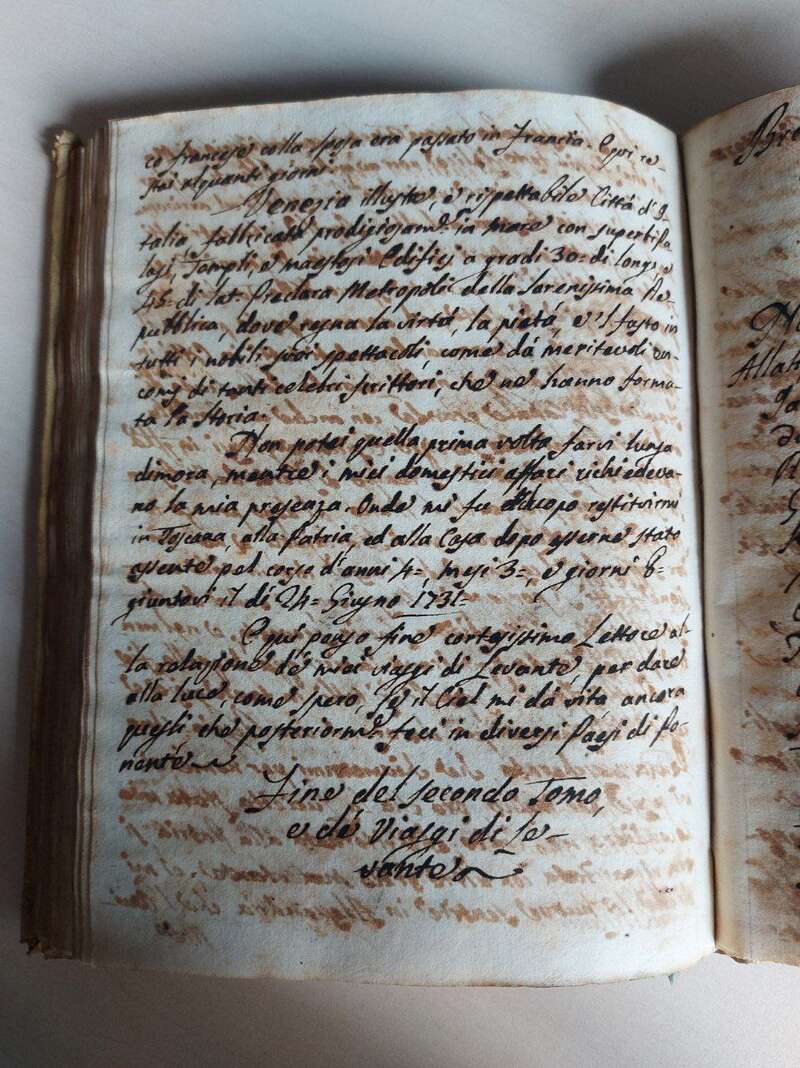 co francese colla sposa era passato in Francia. E qui re-
stai alquanti giorni.
Venezia illustre, e rispettabile Città d' I-
talia, fabbricata prodigiosam.e in mare con superbi Pa-
lazi, Templi, e maestosi Edifizj a gradi 30= di long., e
45= di lat. Preclara Metropoli della Serenissima Re-
pubblica, dove regna la virtá, la pietá, e 'l fasto in
tutti i nobili suoi spettacoli, come dá meritevoli en-
comj di tanti celebri scrittori, che ne hanno forma-
ta la Storia.
Non potei quella prima volta farvi lunga
dimora, mentre i miei domestici affari richiedeva-
no la mia presenza. Onde mi fu d'uopo restituirmi
in Toscana, alla Patria, ed alla Casa dopo esserne stato
assente pel corso d'anni 4=, mesi 3=, e giorni 6=
giuntovi il dí 24= Giugno 1731=
E qui pongo fine cortesissimo Lettore al-
la relazione dé miei viaggi di Levante, per dare
alla luce, come spero, se il Ciel mi dá vita, ancora
quegli che posteriorm.e feci in diversi Paesi di Po-
nente
Fine del secondo Tomo,
e dé Viaggi di Le-
vante